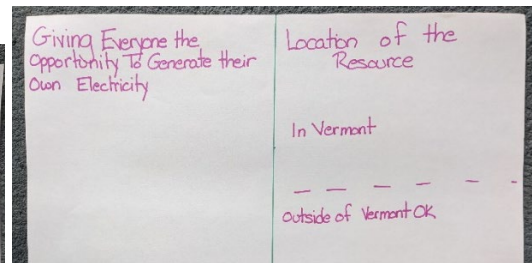 Giving Everyone the
Opportunity To Generate their
Own Electricity
Location of the
Resource
In Vermont
Outside of Vermont OK